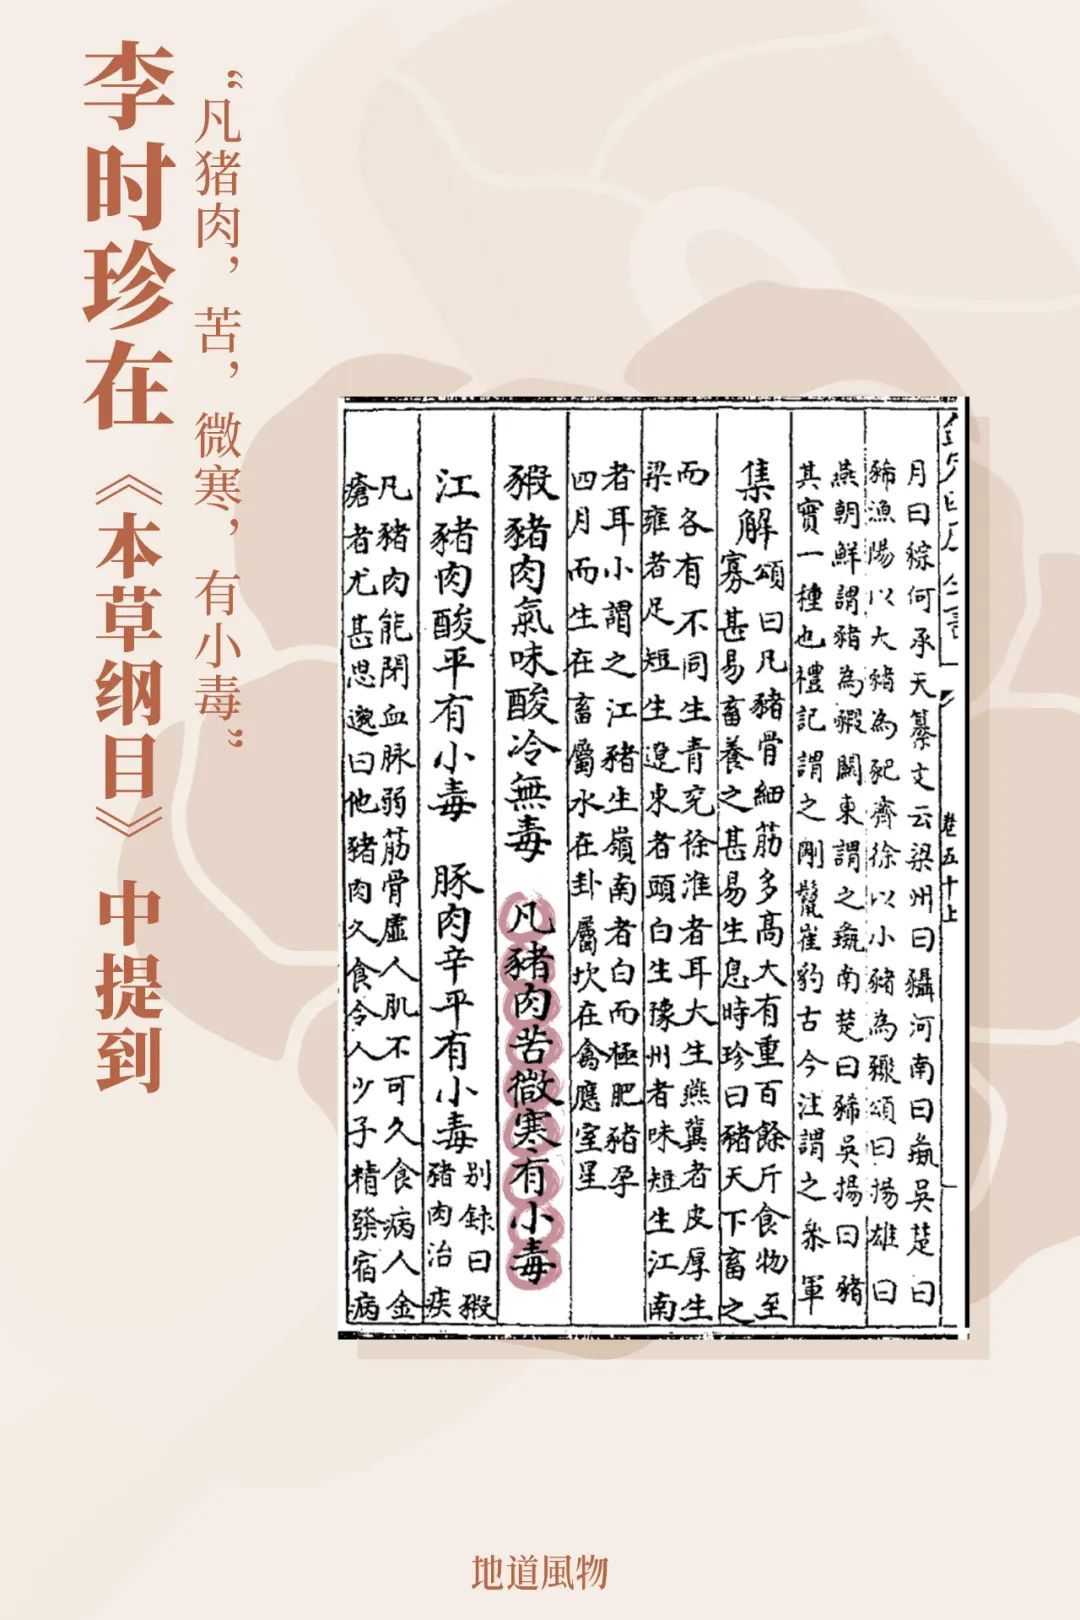 李时珍在《本草纲目》中提到
“凡猪肉，苦，微寒，有小毒”
卷五十上
月曰何承天纂文云梁州曰河南曰彘吳楚曰
豨漁陽以大豬為豝齊徐以小豬為頌曰揚雄曰
燕朝鮮謂豬為豭關東謂之彘南楚曰豨吳揚曰豬
其實一種也禮記謂之剛鬣崔豹古今注謂之㕘軍
集解頌曰凡豬骨細筋多高大有重百餘斤食物至
寡甚易畜養之甚易生息時珍曰豬天下畜之
而各有不同生青兖徐淮者耳大生燕冀者皮厚生
梁雍者足短生遼東者頭白生豫州者味短生江南
者耳小謂之江豬生嶺南者白而極肥豬孕
四月而生在畜屬水在卦屬坎在禽應室星
豭豬肉氣味酸冷無毒 凡豬肉苦微寒有小毒
江豬肉酸平有小毒 豚肉辛平有小毒 別録曰豭
豬肉治疾
凡豬肉能閉血脉弱筋骨虛人肌不可久食病人金
瘡者尤甚思邈曰他豬肉久食令人少子精發宿病
地道風物